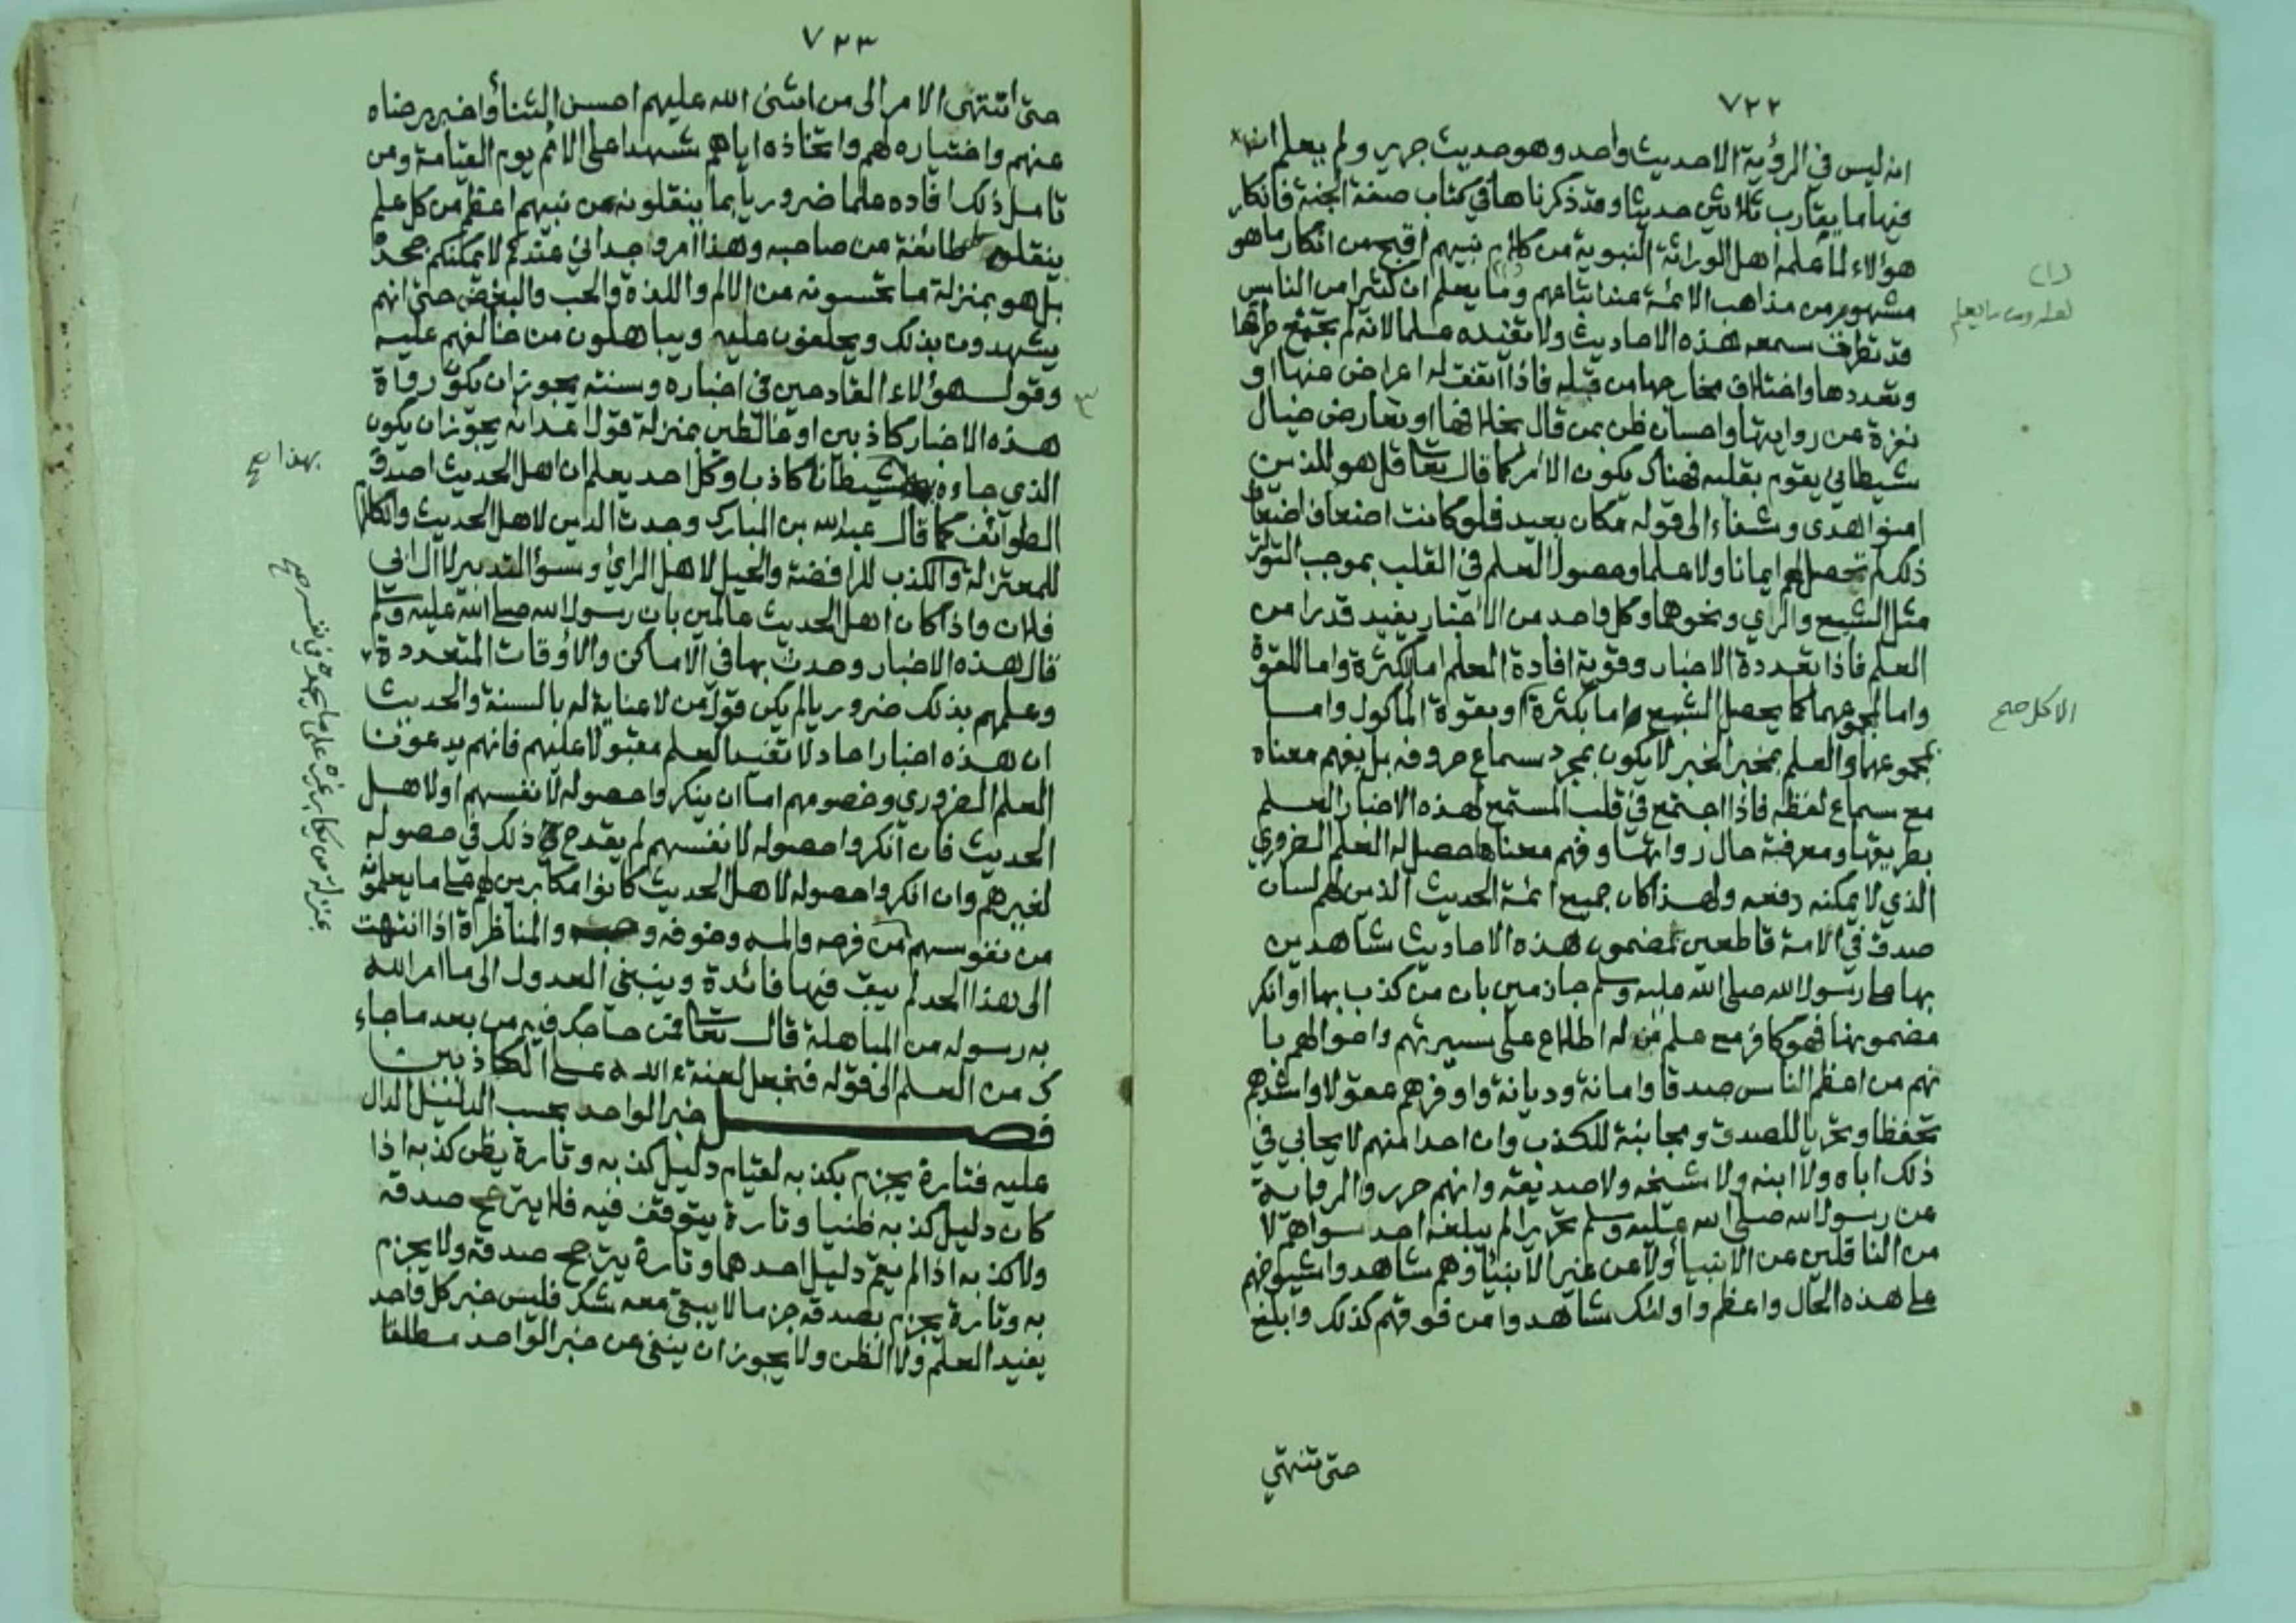 ٧٢٢
انه ليس في الرؤية الا حديث واحد وهو حديث جرير ولم يعلم ان
فيها ما يقارب ثلاثين حديثا وقد ذكرناها في كتاب صفة الجنة فانكار
هؤلاء لما علمه اهل الوراثة النبوية من كلام نبيهم اقبح من انكار ما هو
مشهور من مذاهب الائمة عند اتباعهم وما يعلم ان كثيرا من الناس
قد تطرق سمعه هذه الاحاديث ولا تفيده علما لانه لم يجتمع طرقها
وتعددها واختلاف مخارجها من قبله فاذا اتفق له اعراض عنها او
نفرة عن روايتها واحسان ظن بمن قال بخلافها او تعارض خيال
شيطاني يقوم بقلبه فهناك يكون الامر كما قال تعالى قل هو للذين
امنوا هدى وشفاء الى قوله مكان بعيد فلو كانت اضعاف اضعاف
ذلك لم تحصل لهم ايمانا ولا علما وحصول العلم في القلب بموجب التواتر
مثل الشبع والري ونحوهما وكل واحد من الاخبار يفيد قدرا من
العلم فاذا تعددت الاخبار وقويت افادة العلم اما للكثرة واما للقوة
واما لمجموعهما كما يحصل الشبع اما بكثرة او بقوة المأكول واما
بمجموعهما والعلم بمخبر الخبر لا يكون بمجرد سماع حروفه بل يفهم معناه
مع سماع لفظه فاذا اجتمع في قلب المستمع لهذه الاخبار العلم
بطريقها ومعرفة حال رواتها وفهم معناها حصل له العلم الضروري
الذي لا يمكنه دفعه ولهذا كان جميع ائمة الحديث الذين لهم لسان
صدق في الامة قاطعين بمضمون هذه الاحاديث شاهدين
بها على رسول الله صلى الله عليه وسلم جازمين بان من كذب بها او انكر
مضمونها فهو كافر مع علم من له اطلاع على سيرتهم واحوالهم با
نهم من اعظم الناس صدقا وامانة وديانة واوفرهم عقولا واشدهم
تحفظا وتحريا للصدق ومجانبة للكذب وان احدا منهم لا يحابي في
ذلك اباه ولا ابنه ولا شيخه ولا صديقه وانهم حرروا الرواية
عن رسول الله صلى الله عليه وسلم تحريرا لم يبلغه احد سواهم لا
من الناقلين عن الانبياء ولا عن غير الانبياء وهم شاهدوا شيوخهم
على هذه الحال واعظم واولئك شاهدوا من فوقهم كذلك وابلغ
حتى تنتهي
(١)
لعله ومن ما يعلم
الاكل صح
٧٢٣
حتى انتهى الامر الى من اثنى الله عليهم احسن الثناء واخبر برضاه
عنهم واختياره لهم واتخاذه اياهم شهداء على الامم يوم القيامة ومن
تأمل ذلك افاده علما ضروريا بما ينقلونه عن نبيهم اعظم من كل علم
ينقله كل طائفة من صاحبه وهذا امر وجداني عندكم لا يمكنكم جحده
بل هو بمنزلة ما تحسونه من الالم واللذة والحب والبغض حتى انهم
يشهدون بذلك ويحلفون عليه ويباهلون من خالفهم عليه
وقول هؤلاء القادحين في اخباره وسنته يجوز ان يكون رواة
هذه الاخبار كاذبين او غالطين بمنزلة قول اعدائه يجوز ان يكون
الذي جاءه شيطانا كاذبا وكل احد يعلم ان اهل الحديث اصدق
الطوائف كما قال عبد الله بن المبارك وجدت الدين لاهل الحديث والكلام
للمعتزلة والكذب للرافضة والحيل لاهل الرأي وسوء التدبير لآل ابي
فلان واذا كان اهل الحديث عالمين بان رسول الله صلى الله عليه وسلم
قال هذه الاخبار وحدث بها في الاماكن والاوقات المتعددة
وعلمهم بذلك ضروريا لم يكن قول من لا عناية له بالسنة والحديث
ان هذه اخبار احاد لا تفيد العلم مقبولا عليهم فانهم يدعون
العلم الضروري وخصومهم اما ان ينكروا حصوله لانفسهم او لاهل
الحديث فان انكروا حصوله لانفسهم لم يقدح ذلك في حصوله
لغيرهم وان انكروا حصوله لاهل الحديث كانوا مكابرين لهم على ما يعلمونه
من نفوسهم من فرحه والمه وخوفه وحبه والمناظرة اذا انتهت
الى هذا الحد لم يبق فيها فائدة وينبغي العدول الى ما امر الله
به رسوله من المباهلة قال تعالى فمن حاجك فيه من بعد ما جاء
ك من العلم الى قوله فنجعل لعنة الله على الكاذبين
فصل خبر الواحد بحسب الدليل الدال
عليه فتارة يجزم بكذبه لقيام دليل كذبه وتارة يظن كذبه اذا
كان دليل كذبه ظنيا وتارة يتوقف فيه فلا يترجح صدقه
ولا كذبه اذا لم يقم دليل احدهما وتارة يترجح صدقه ولا يجزم
به وتارة يجزم بصدقه جزما لا يبقى معه شك فليس خبر كل واحد
يفيد العلم ولا الظن ولا يجوز ان ينفى عن خبر الواحد مطلقا
بهذا صح
بمنزلة من يكابر غيره على ما يجده في نفسه صح